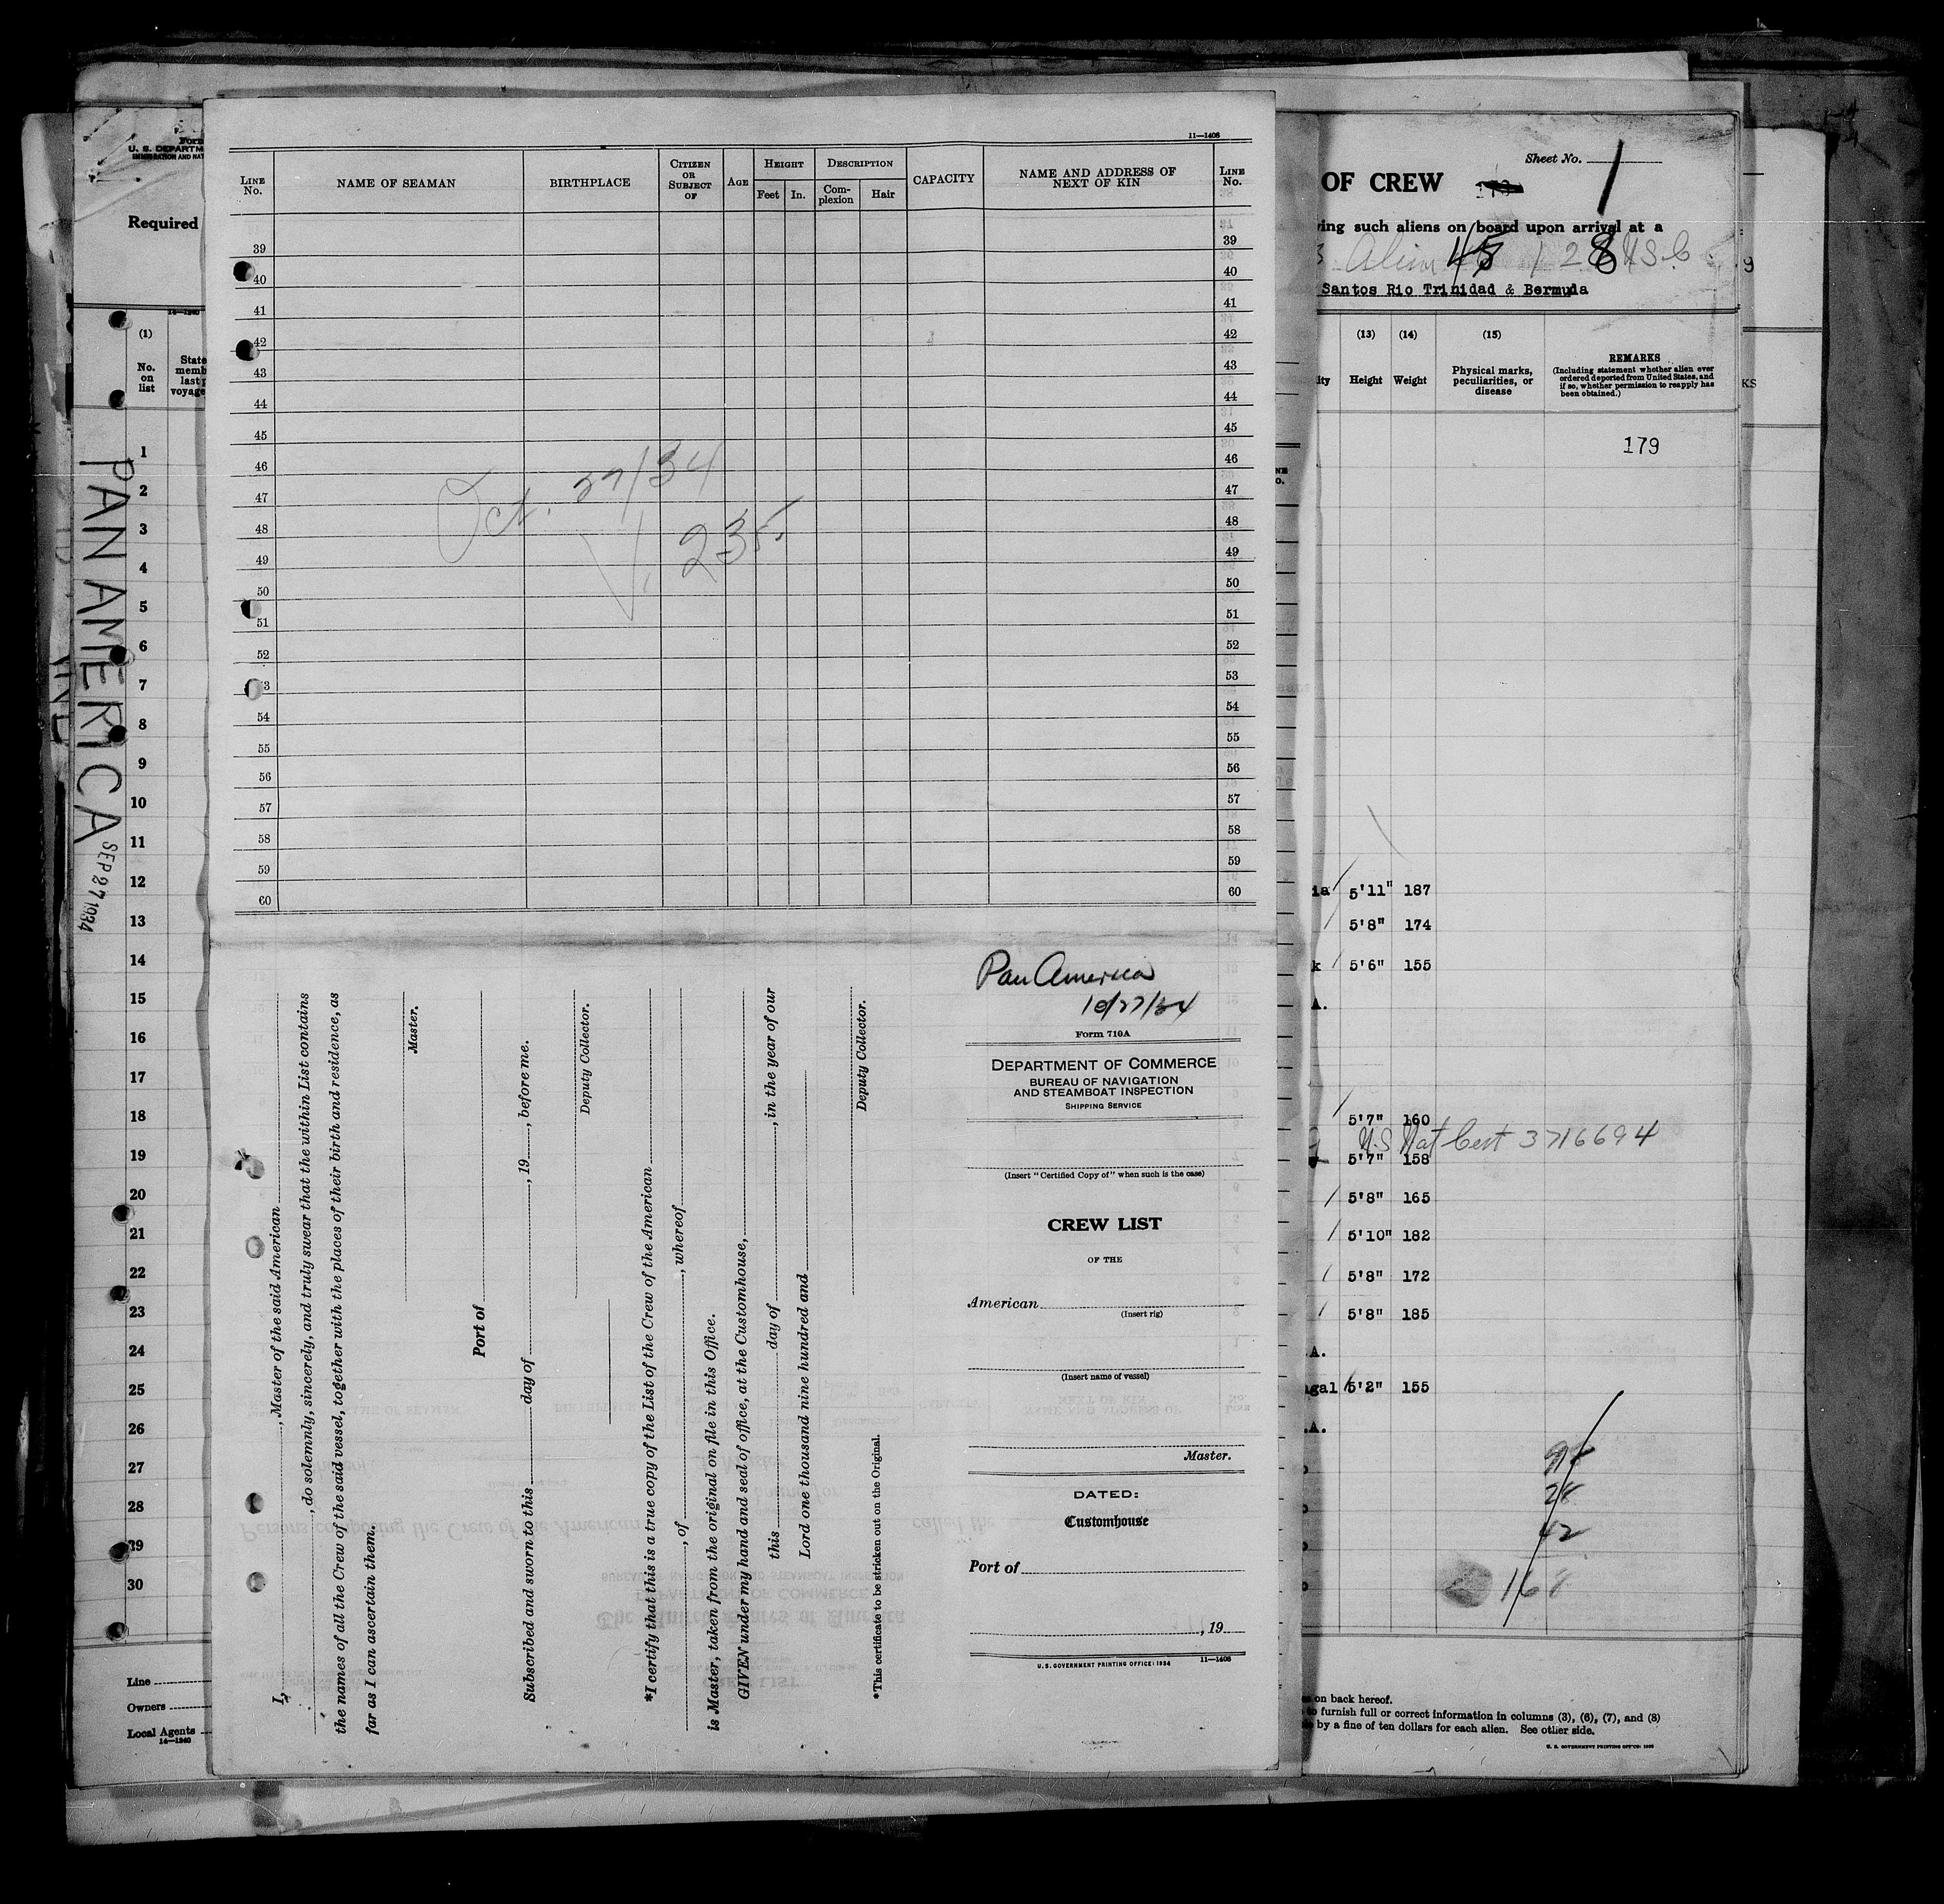 11—1408
LINE No.
NAME OF SEAMAN
BIRTHPLACE
CITIZEN OR SUBJECT OF
AGE
HEIGHT
Feet
In.
DESCRIPTION
Com-plexion
Hair
CAPACITY
NAME AND ADDRESS OF NEXT OF KIN
LINE No.
39 39
40 40
41 41
42 42
43 43
44 44
45 45
46 46
47 47
48 48
49 49
50 50
51 51
52 52
53
54 54
55 55
56 56
57 57
58 58
59 59
60 60
Oct. 27/34
V. 235.
I, , Master of the said American
, do solemnly, sincerely, and truly swear that the within List contains
the names of all the Crew of the said vessel, together with the places of their birth and residence, as
far as I can ascertain them.
Master.
Port of
Subscribed and sworn to this day of , 19 , before me.
Deputy Collector.
*I certify that this is a true copy of the List of the Crew of the American
, of , whereof
is Master, taken from the original on file in this Office.
GIVEN under my hand and seal of office, at the Customhouse,
this day of , in the year of our
Lord one thousand nine hundred and
Deputy Collector.
*This certificate to be stricken out on the Original.
Pan America
10/27/34
Form 710A
DEPARTMENT OF COMMERCE
BUREAU OF NAVIGATION
AND STEAMBOAT INSPECTION
SHIPPING SERVICE
(Insert "Certified Copy of" when such is the case)
CREW LIST
OF THE
American
(Insert rig)
(Insert name of vessel)
Master.
DATED:
Customhouse
Port of
, 19
U.S. GOVERNMENT PRINTING OFFICE: 1934 11—1408
Form
U. S. DEPARTM
IMMIGRATION AND NAT
Required
14—1240
(1)
No. on list
State
memb
last p
voyage
1
2
3
4
5
6
7
8
9
10
11
12
13
14
15
16
17
18
19
20
21
22
23
24
25
26
27
28
29
30
Line
Owners
Local Agents
14—1240
PAN AMERICA
SEP 27 1934
Sheet No. 1
OF CREW
ving such aliens on board upon arrival at a
Alien 128 USC
Santos Rio Trinidad & Bermuda
(13) (14) (15)
Height
Weight
Physical marks, peculiarities, or disease
REMARKS
(Including statement whether alien ever
ordered deported from United States, and
if so, whether permission to reapply has
been obtained.)
179
ia 5'11" 187
5'8" 174
k 5'6" 155
A.
5'7" 160
U.S Nat Cert 3716694
5'7" 158
5'8" 165
5'10" 182
5'8" 172
5'8" 185
.A.
gal 5'2" 155
.A.
98
28
42
168
on back hereof.
to furnish full or correct information in columns (3), (6), (7), and (8)
by a fine of ten dollars for each alien. See other side.